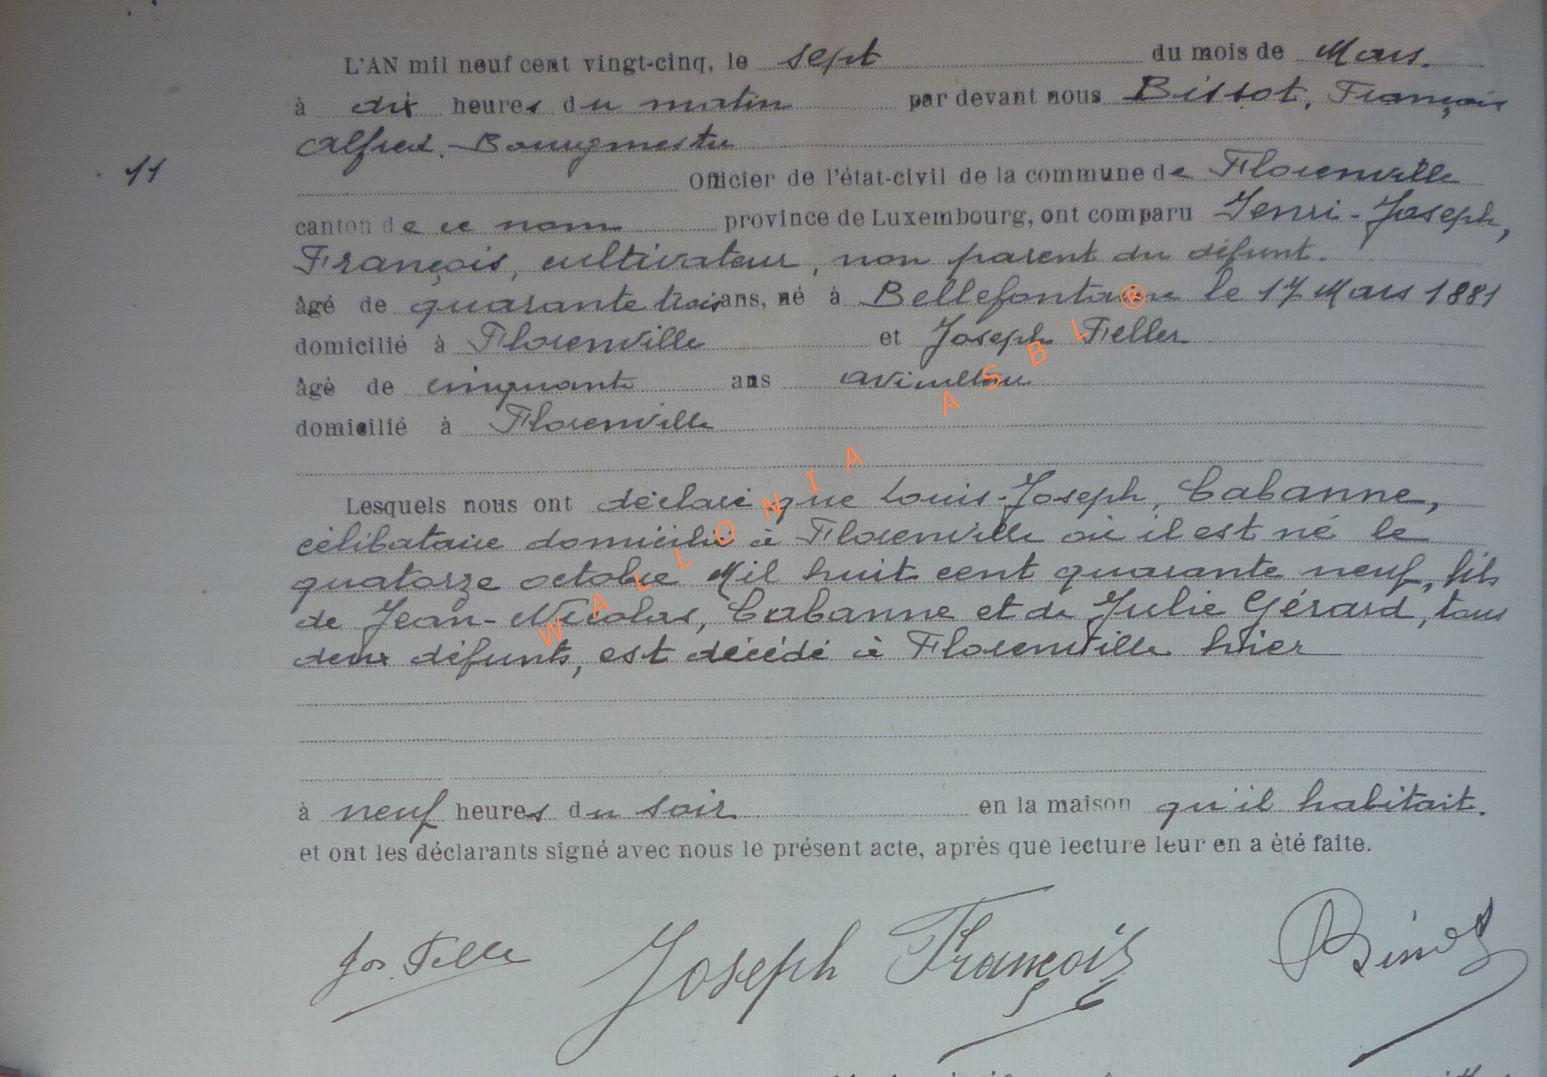 L'AN mil neuf cent vingt-cinq, le sept du mois de Mars.
à dix heures du matin par devant nous Bissot, François
Alfred. Bourgmestre
11 Officier de l'état-civil de la commune de Florenville
canton de ce nom province de Luxembourg, ont comparu Henri-Joseph,
François, cultivateur, non parent du défunt.
âgé de quarante trois ans, né à Bellefontaine le 17 Mars 1881
domicilié à Florenville et Joseph Feller
âgé de cinquante ans aviculteur
domicilié à Florenville
Lesquels nous ont déclaré que Louis-Joseph, Cabanne,
célibataire domicilié à Florenville où il est né le
quatorze octobre Mil huit cent quarante neuf, fils
de Jean-Nicolas, Cabanne et de Julie Gérard, tous
deux défunts, est décédé à Florenville hier
à neuf heures du soir en la maison qu'il habitait.
et ont les déclarants signé avec nous le présent acte, après que lecture leur en a été faite.
Jos. Feller Joseph François Bissot
WALLONIA ASBL ®